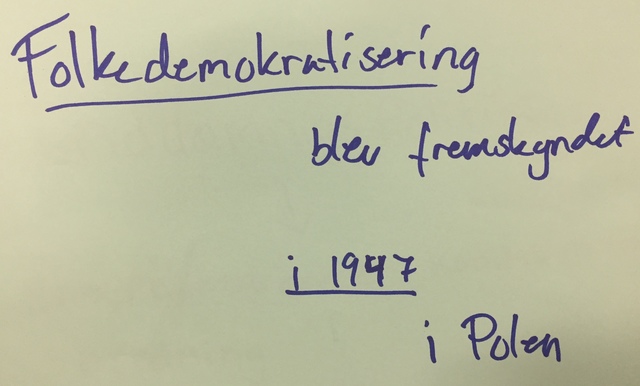 Folkedemokratisering
blev fremskyndet
i 1947
i Polen